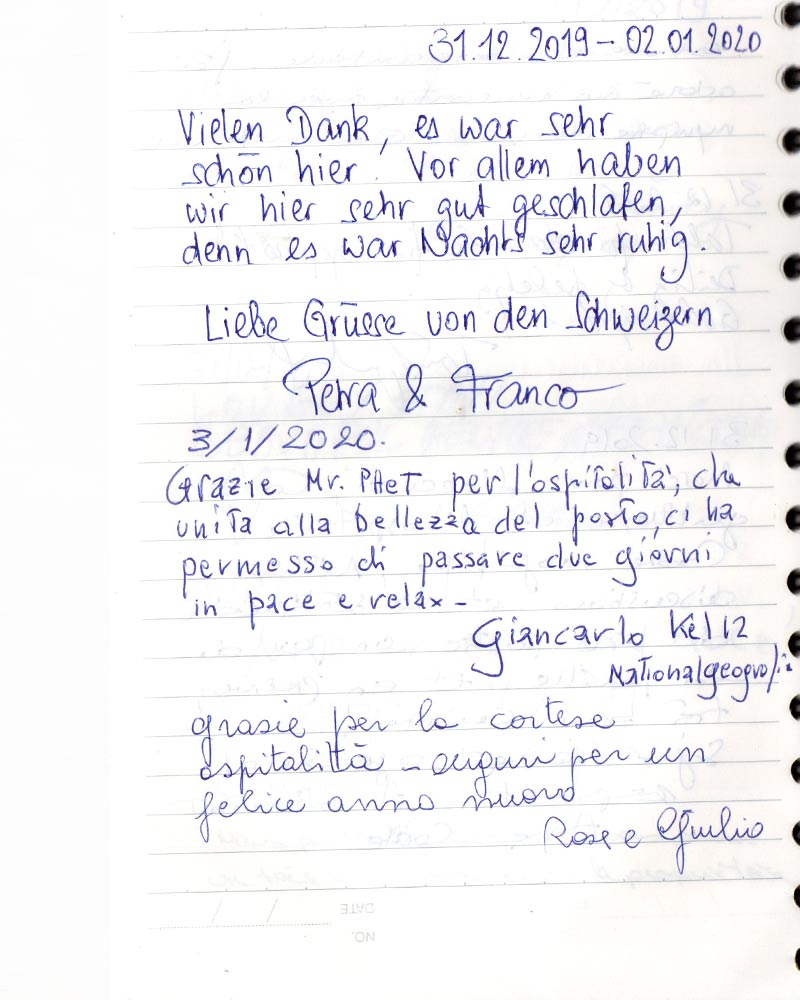 31.12.2019 – 02.01.2020
Vielen Dank, es war sehr
schön hier! Vor allem haben
wir hier sehr gut geschlafen,
denn es war Nachts sehr ruhig.
Liebe Grüsse von den Schweizern
Petra & Franco
3/1/2020.
Grazie Mr. PHET per l'ospitalità, che
unita alla bellezza del posto, ci ha
permesso di passare due giorni
in pace e relax –
Giancarlo
Nationalgeografic
grasie per la cortese
ospitalittà – auguri per un
felice anno nuovo
Rose e Giulio
DATE
NO.